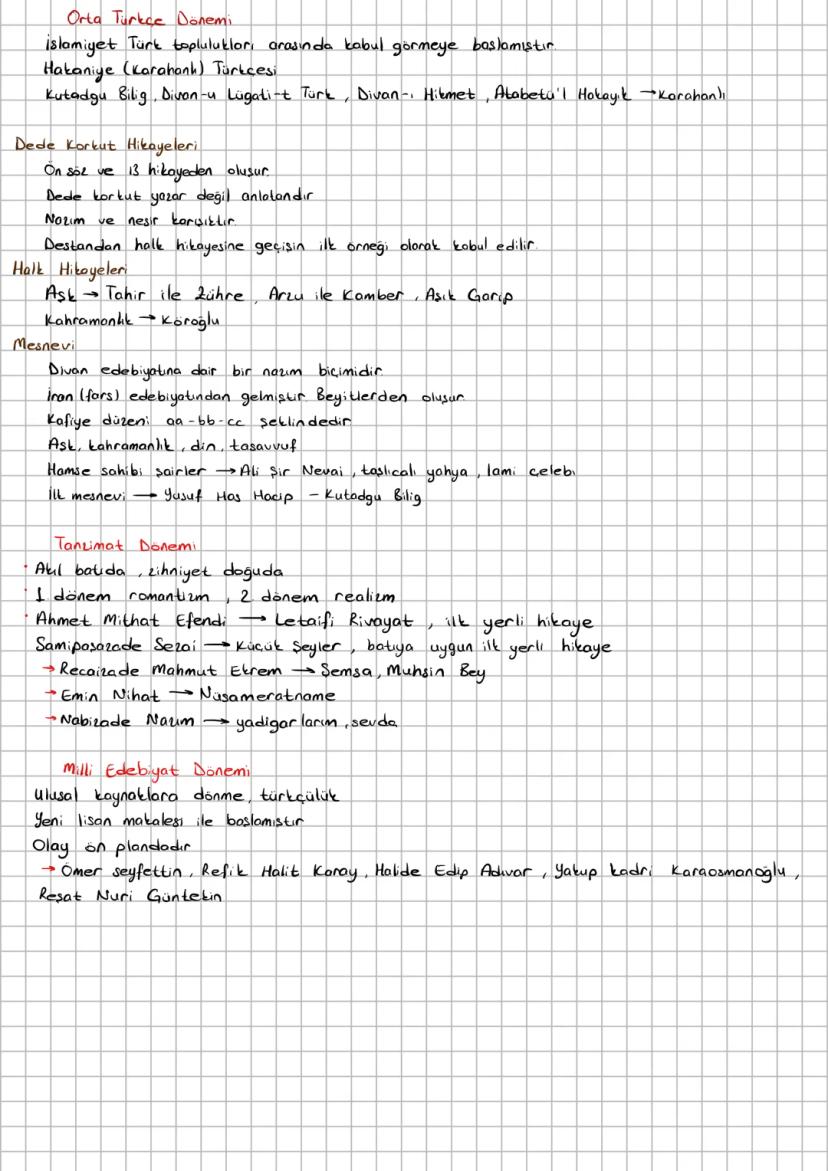 Orta Türkçe Dönemi
İslamiyet Türk toplulukları arasında kabul görmeye başlamıştır
Hakaniye (Karahanlı) Türkçesi
Kutadgu Bilig, Divan-u Lügati-t Türk, Divan-ı Hikmet, Atabetü'l Hakayık → Karahanlı
Dede Korkut Hikayeleri
Ön söz ve 13 hikayeden oluşur.
Dede korkut yazar değil anlatandır
Nazım ve nesir karışıktır.
Destandan halk hikayesine geçişin ilk örneği olarak kabul edilir.
Halk Hikayeleri
Aşk → Tahir ile Zühre, Arzu ile Kamber, Aşık Garip
Kahramanlık → Köroğlu
Mesnevi
Divan edebiyatına dair bir nazım biçimidir
İran (fars) edebiyatından gelmiştir Beyitlerden oluşur
Kafiye düzeni aa-bb-cc şeklindedir
Aşk, kahramanlık, din, tasavvuf
Hamse sahibi şairler → Ali Şir Nevai, taşlıcalı yahya, lami çelebi
İlk mesnevi → Yusuf Has Hacip - Kutadgu Bilig
Tanzimat Dönemi
· Akıl batıda, zihniyet doğuda
· 1 dönem romantizm, 2 dönem realizm
· Ahmet Mithat Efendi → Letaifi Rivayat, ilk yerli hikaye
Samipaşazade Sezai → Küçük Şeyler, batıya uygun ilk yerli hikaye
→ Recaizade Mahmut Ekrem → Şemsa, Muhsin Bey
→ Emin Nihat → Müsameratname
→ Nabizade Nazım → yadigarlarım, sevda
Milli Edebiyat Dönemi
Ulusal kaynaklara dönme, türkçülük
Yeni lisan makalesi ile başlamıştır
Olay ön plandadır
→ Ömer seyfettin, Refik Halit Karay, Halide Edip Adıvar, Yakup kadri Karaosmanoğlu,
Reşat Nuri Güntekin